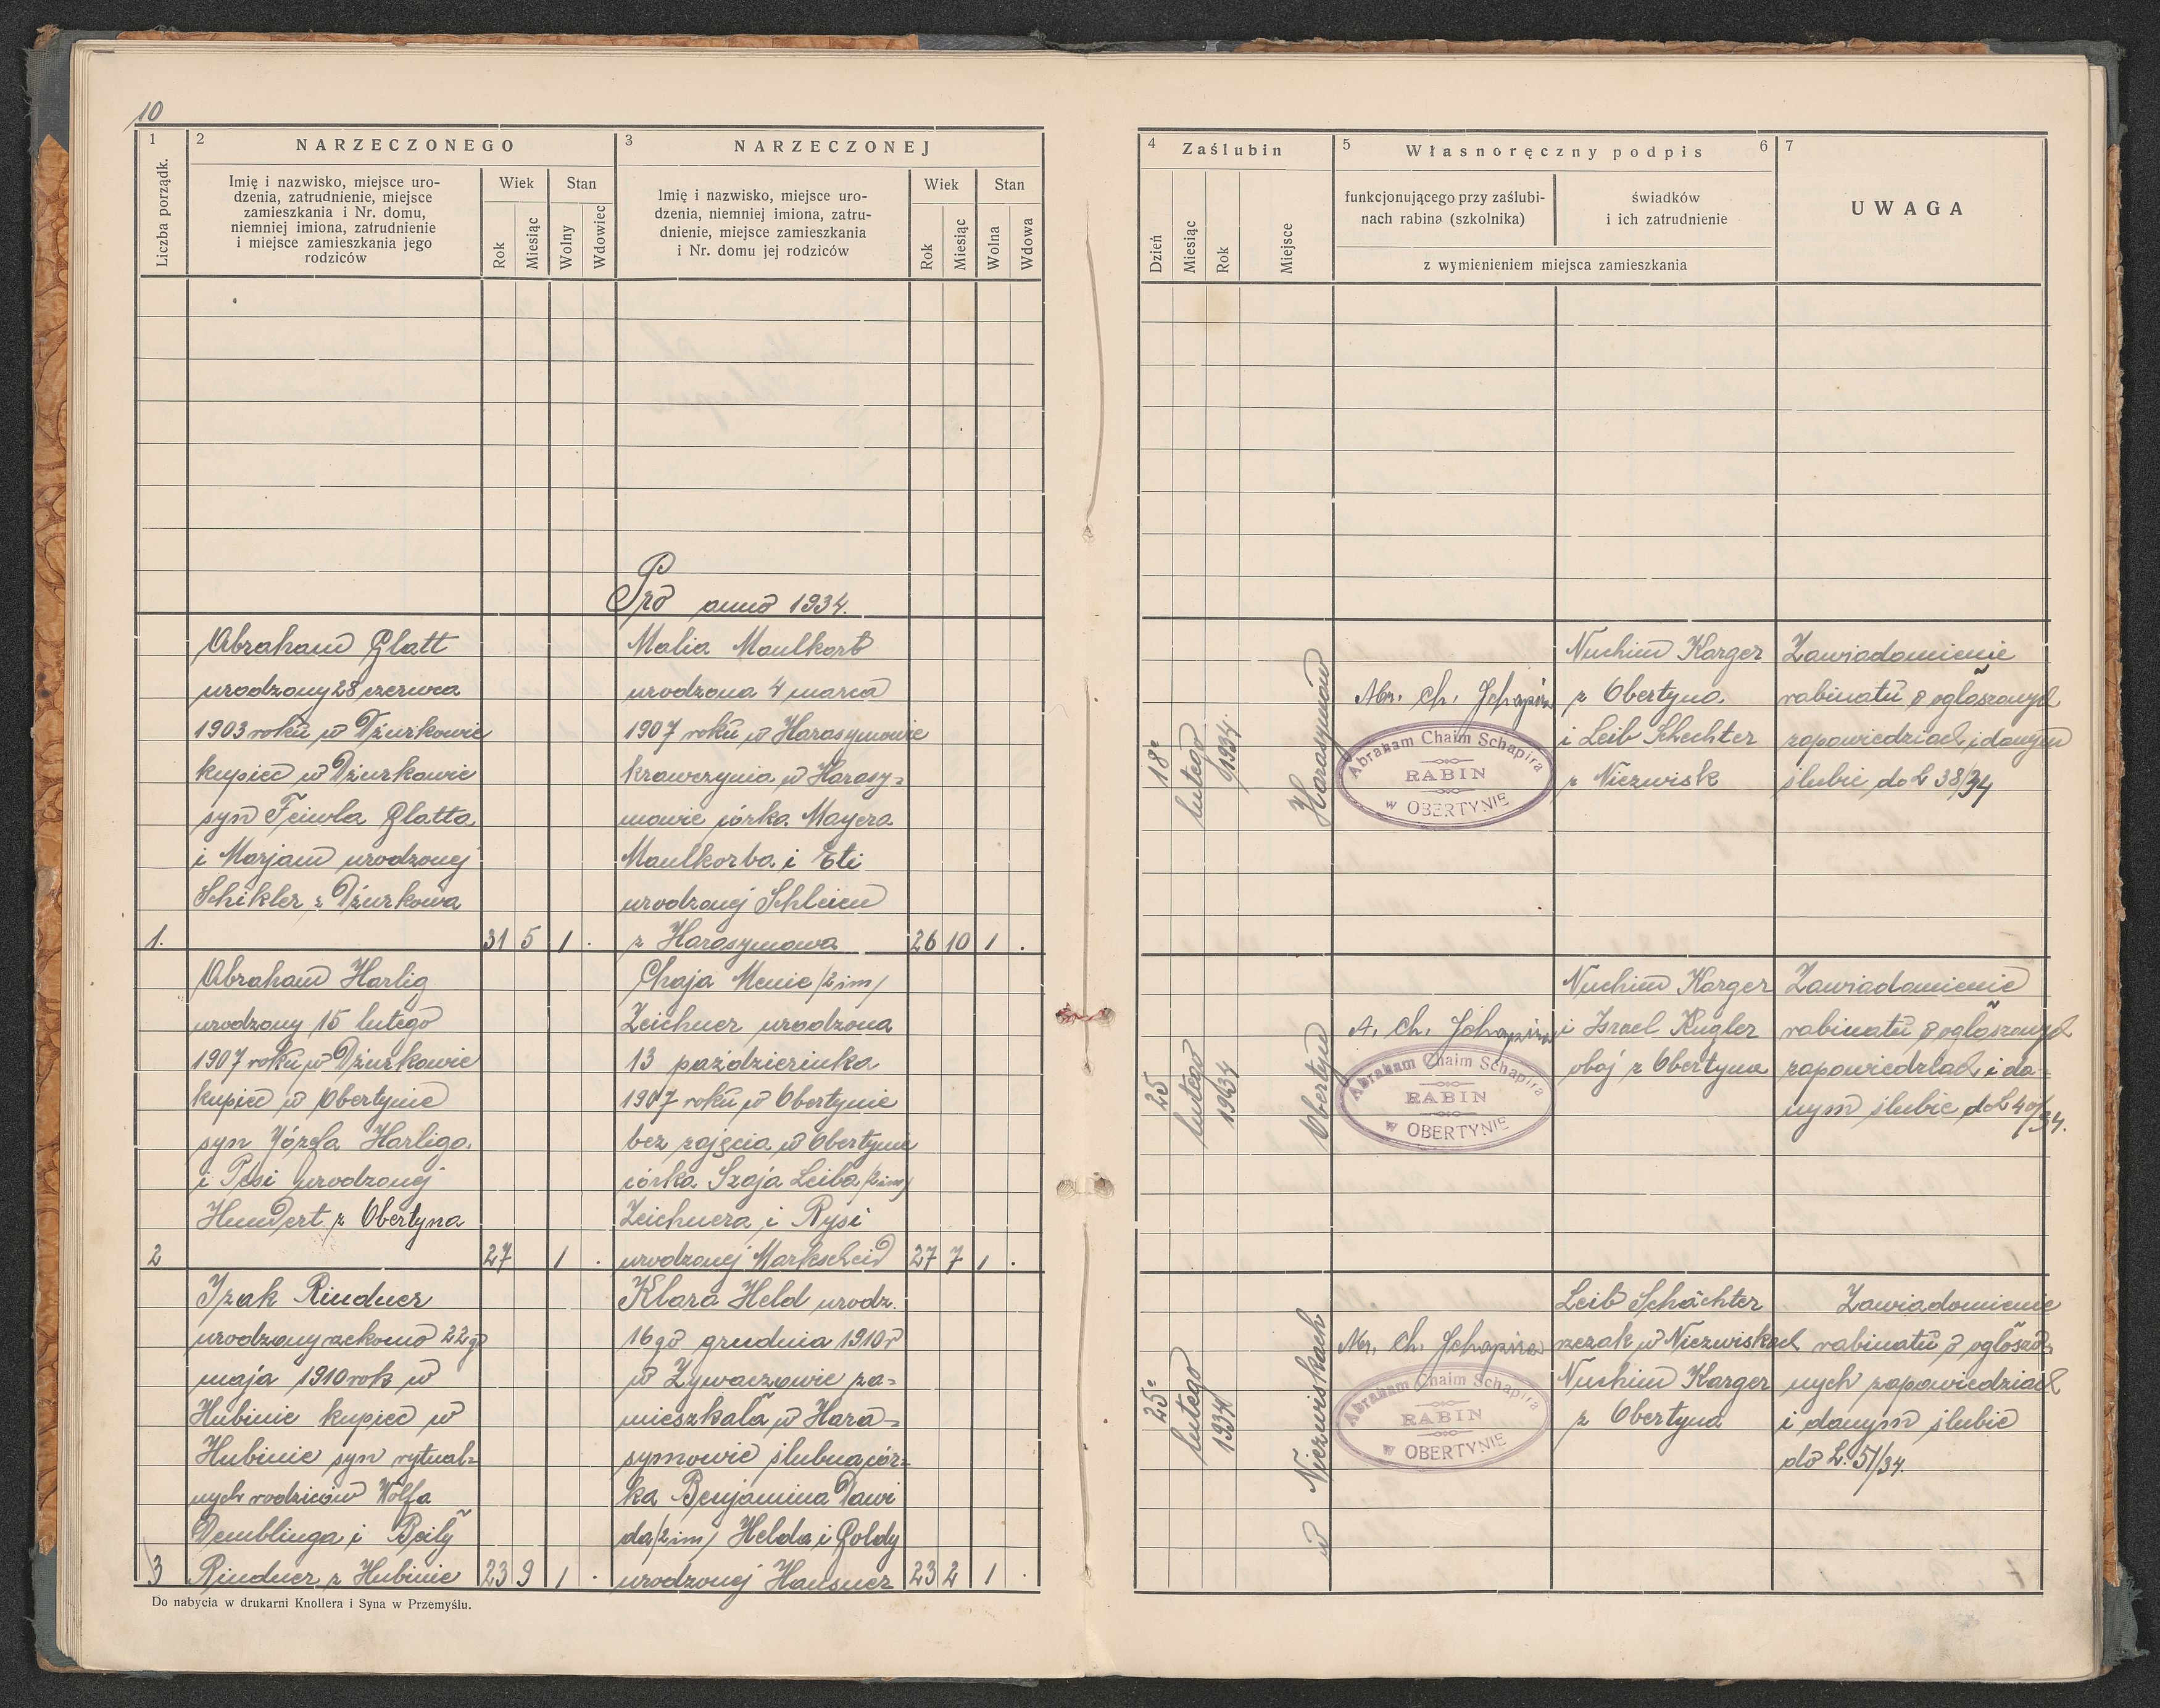 10
1
Liczba porządk.
2
NARZECZONEGO
Imię i nazwisko, miejsce uro-
dzenia, zatrudnienie, miejsce
zamieszkania i Nr. domu,
niemniej imiona, zatrudnienie
i miejsce zamieszkania jego
rodziców
Wiek
Rok
Miesiąc
Stan
Wolny
Wdowiec
3
NARZECZONEJ
Imię i nazwisko, miejsce uro-
dzenia, niemniej imiona, zatru-
dnienie, miejsce zamieszkania
i Nr. domu jej rodziców
Wiek
Rok
Miesiąc
Stan
Wolna
Wdowa
4
Zaślubin
Dzień
Miesiąc
Rok
Miejsce
5
Własnoręczny podpis
6
funkcjonującego przy zaślubi-
nach rabina (szkolnika)
świadków
i ich zatrudnienie
z wymienieniem miejsca zamieszkania
7
UWAGA
Pro anno 1934.
1.
Abraham Glatt
urodzony 28 czerwca
1903 roku w Dżurkowie
kupiec w Dżurkowie
syn Feiwla Glatta
i Marjam urodzonej
Schikler z Dżurkowa
31 5 1 .
Malia Maulkorb
urodzona 4 marca
1907 roku w Harasymowie
krawczynia w Harasy=
mowie córka Mayera
Maulkorba i Eti
urodzonej Schleien
z Harasymowa
26 10 1 .
18e
lutego
1934.
Harasymów
Abr. Ch. Schapira
Abraham Chaim Schapira
RABIN
w OBERTYNIE
Nuchim Karger
z Obertyna
i Leib Schechter
z Niezwisk
Zawiadomienie
rabinatu o ogłoszonych
zapowiedziach i danym
ślubie do L 38/34
2
Abraham Harlig
urodzony 15 lutego
1907 roku w Dżurkowie
kupiec w Obertynie
syn Józefa Harliga
i Pesi urodzonej
Hundert z Obertyna
27 1 .
Chaja Menie /2 im/
Zeichner urodzona
13 październka
1907 roku w Obertynie
bez zajęcia w Obertynie
córka Szaja Leiba /2 im/
Zeichnera i Rysi
urodzonej Markscheid
27 7 1 .
25
lutego
1934
Obertyn
A. Ch. Schapira
Abraham Chaim Schapira
RABIN
w OBERTYNIE
Nuchim Karger
i Israel Kugler
obaj z Obertyna
Zawiadomienie
rabinatu o ogłoszonych
zapowiedziach i da=
nym ślubie do L 40/34.
3
Izak Rindner
urodzony rzekomo 22go
maja 1910 rok w
Hubinie kupiec w
Hubinie syn rytual=
nych rodziców Wolfa
Demblinga i Beily
Rindner z Hubinie
23 9 1 .
Klara Held urodz.
16go grudnia 1910 r
w Żywaczowie za=
mieszkała w Hara=
symowie ślubna cór=
ka Benjamina Dawi
da /2 im/ Helda i Goldy
urodzonej Hausner
23 2 1 .
25e
lutego
1934
w Niezwiskach
Abr. Ch. Schapira
Abraham Chaim Schapira
RABIN
w OBERTYNIE
Leib Schächter
rzezak w Niezwiskach
Nuchim Karger
z Obertyna
Zawiadomienie
rabinatu o ogłoszo=
nych zapowiedziach
i danym ślubie
do L. 51/34.
Do nabycia w drukarni Knollera i Syna w Przemyślu.